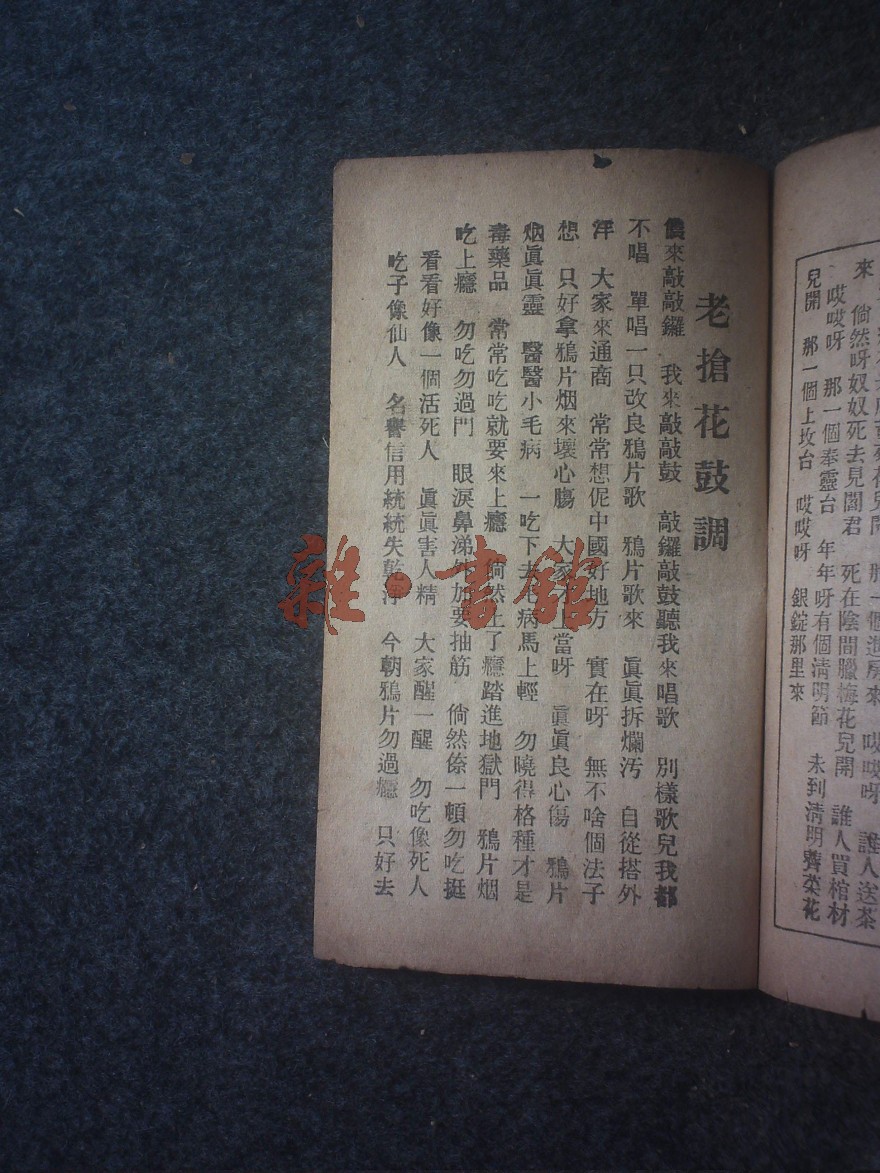 來　倘然呀奴奴死去見閻君　死在陰間臘梅花兒開　誰人買棺材
哎哎呀　那一個奉靈台　年年呀有個清明節　未到清明薺菜花
兒開　那一個上坟台　哎哎呀　銀錠那里來
老搶花鼓調
儂來敲敲鑼　我來敲敲鼓　敲鑼敲鼓聽我來唱歌　別樣歌兒我都
不唱　單唱一只改良鴉片歌　鴉片歌來　眞眞拆爛汚　自從搭外
洋　大家來通商　常常想伲中國好地方　實在呀　無不啥個法子
想　只好拿鴉片烟來壞心膓　大家才上當呀　眞眞良心傷　鴉片
烟眞眞靈　醫醫小毛病　一吃下去毛病馬上輕　勿曉得格種才是
毒藥品　常常吃吃就要來上癮　倘然上了癮踏進地獄門　鴉片烟
吃上癮　勿吃勿過門　眼淚鼻涕外加要抽筋　倘然㑚一頓勿吃挺
看看好像一個活死人　眞眞害人精　大家醒一醒　勿吃像死人
吃子像仙人　名譽信用統統失乾淨　今朝鴉片勿過癮　只好去
雜·書館